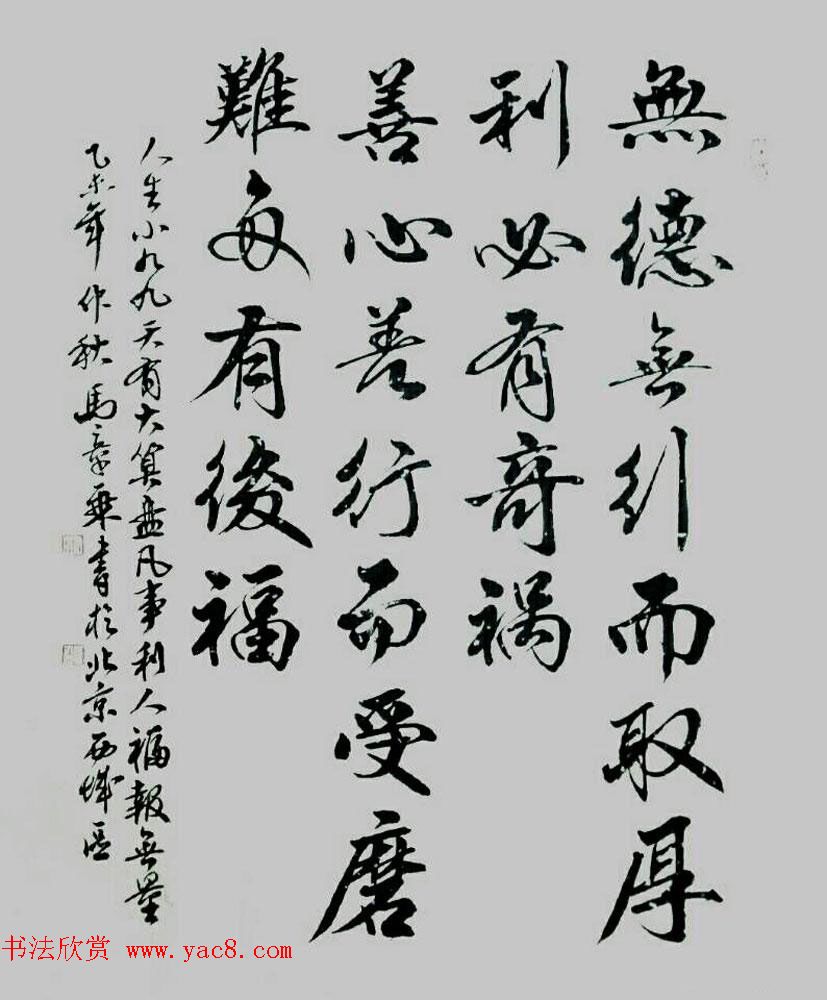 無德無行而取厚
利必有奇禍
善心善行而受磨
難每有後福
人生小九九天有大算盘凡事利人福報無量
乙未年仲秋馬章乘書於北京西城區
书法欣赏 www.yac8.com